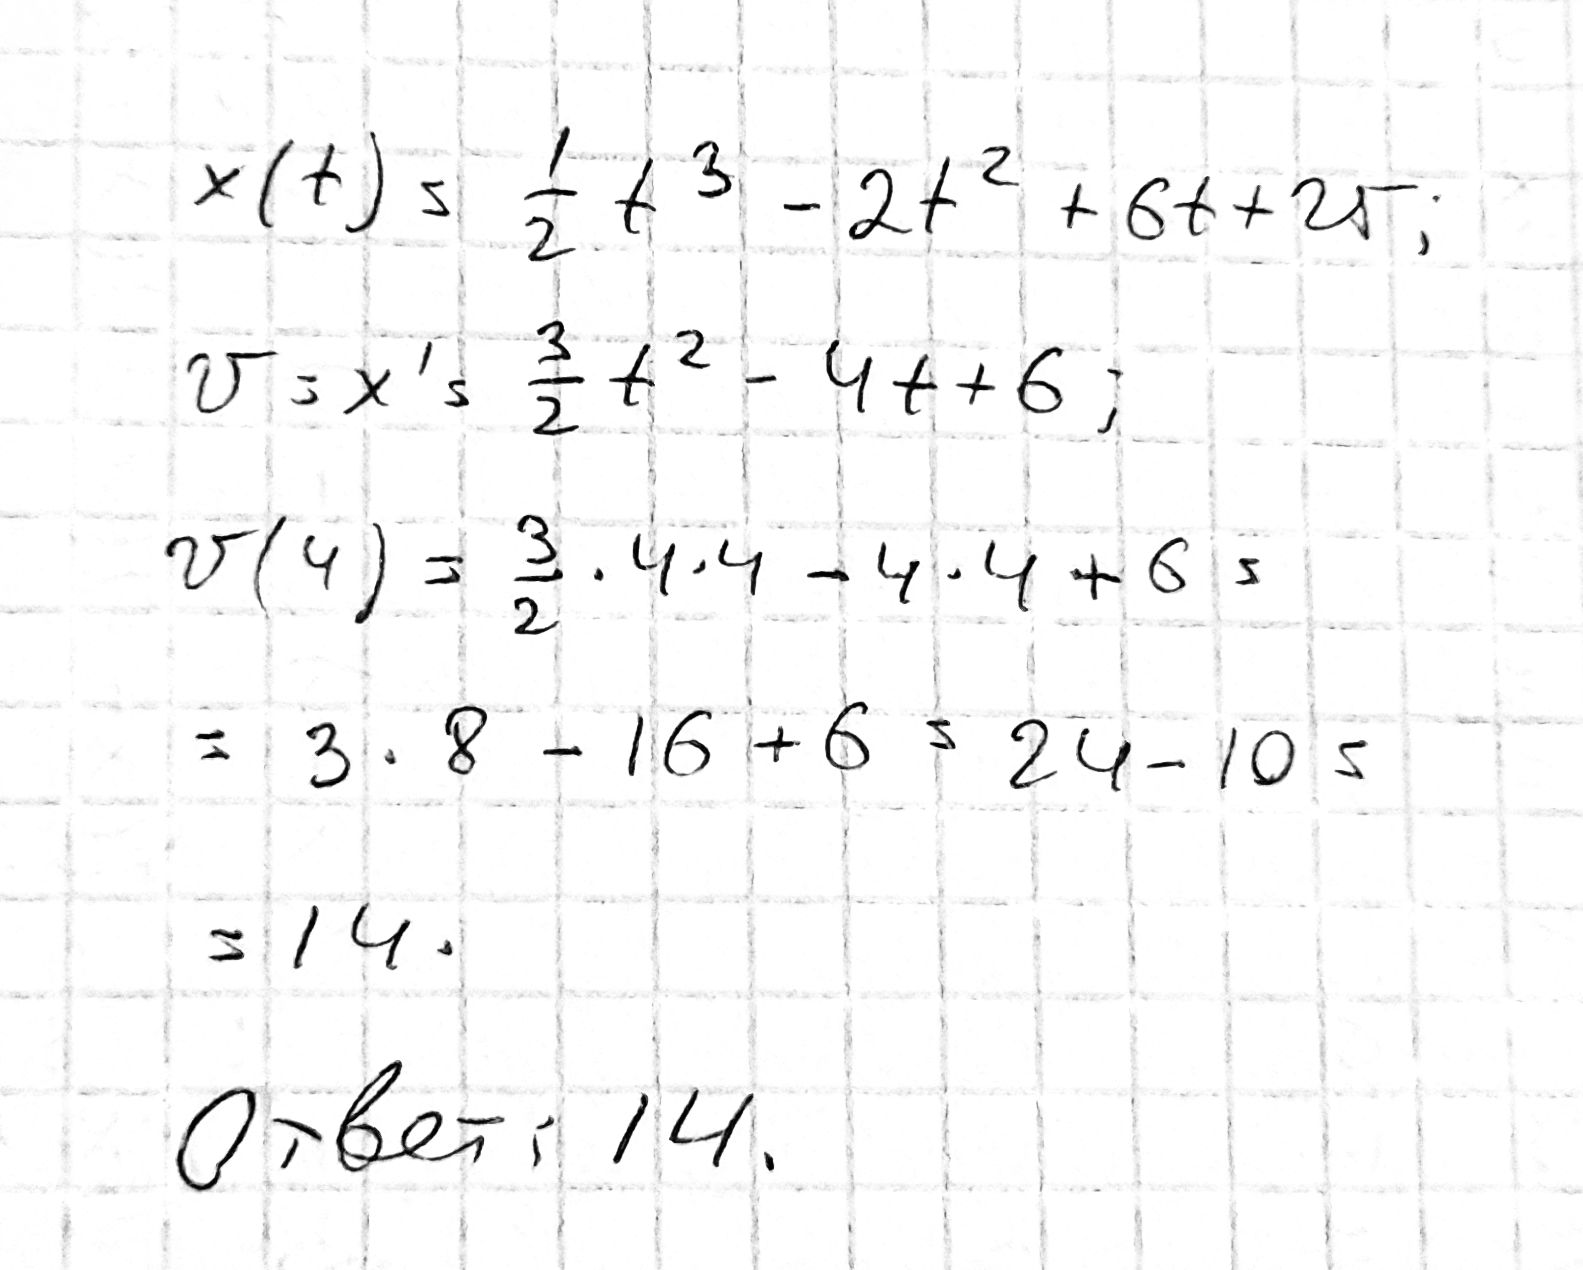 x(t) = 1/2 t³ - 2t² + 6t + 25;
v = x' = 3/2 t² - 4t + 6;
v(4) = 3/2 · 4 · 4 - 4 · 4 + 6 =
= 3 · 8 - 16 + 6 = 24 - 10 =
= 14.
Ответ: 14.